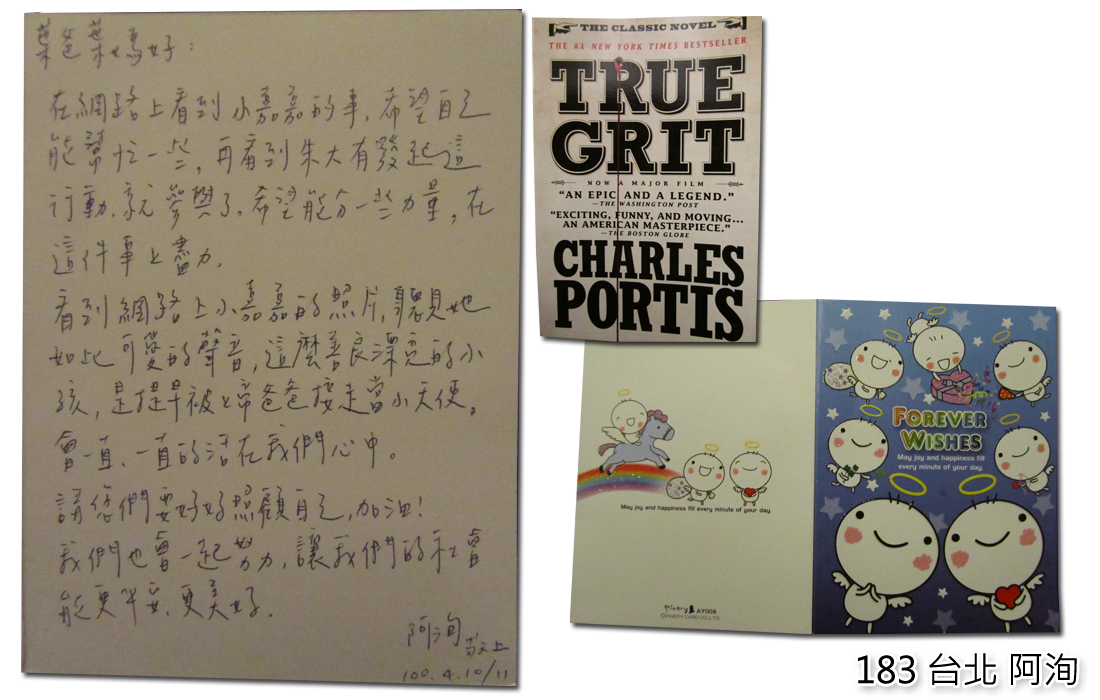 葉爸葉媽好：
在網路上看到小嘉嘉的事，希望自己
能幫忙一些，再看到朱大有發起這
行動、就參與了。希望能分一些力量，在
這件事上盡力。
看到網路上小嘉嘉的照片，聽見她
如此可愛的聲音，這麼善良漂亮的小
孩，是提早被上帝爸爸接走當小天使。
會一直、一直的活在我們心中。
請您們要好好照顧自己，加油！
我們也會一起努力，讓我們的社會
能更平安、更美好。
阿洵
敬上
100.4.10/11
THE CLASSIC NOVEL
THE #1 NEW YORK TIMES BESTSELLER
TRUE
GRIT
NOW A MAJOR FILM
“AN EPIC AND A LEGEND.”
—THE WASHINGTON POST
“EXCITING, FUNNY, AND MOVING...
AN AMERICAN MASTERPIECE.”
—THE BOSTON GLOBE
CHARLES
PORTIS
May joy and happiness fill every minute of your day.
Pinery AY008
©PINERY CARD CO.,LTD.
FOREVER
WISHES
May joy and happiness fill
every minute of your day.
183 台北 阿洵